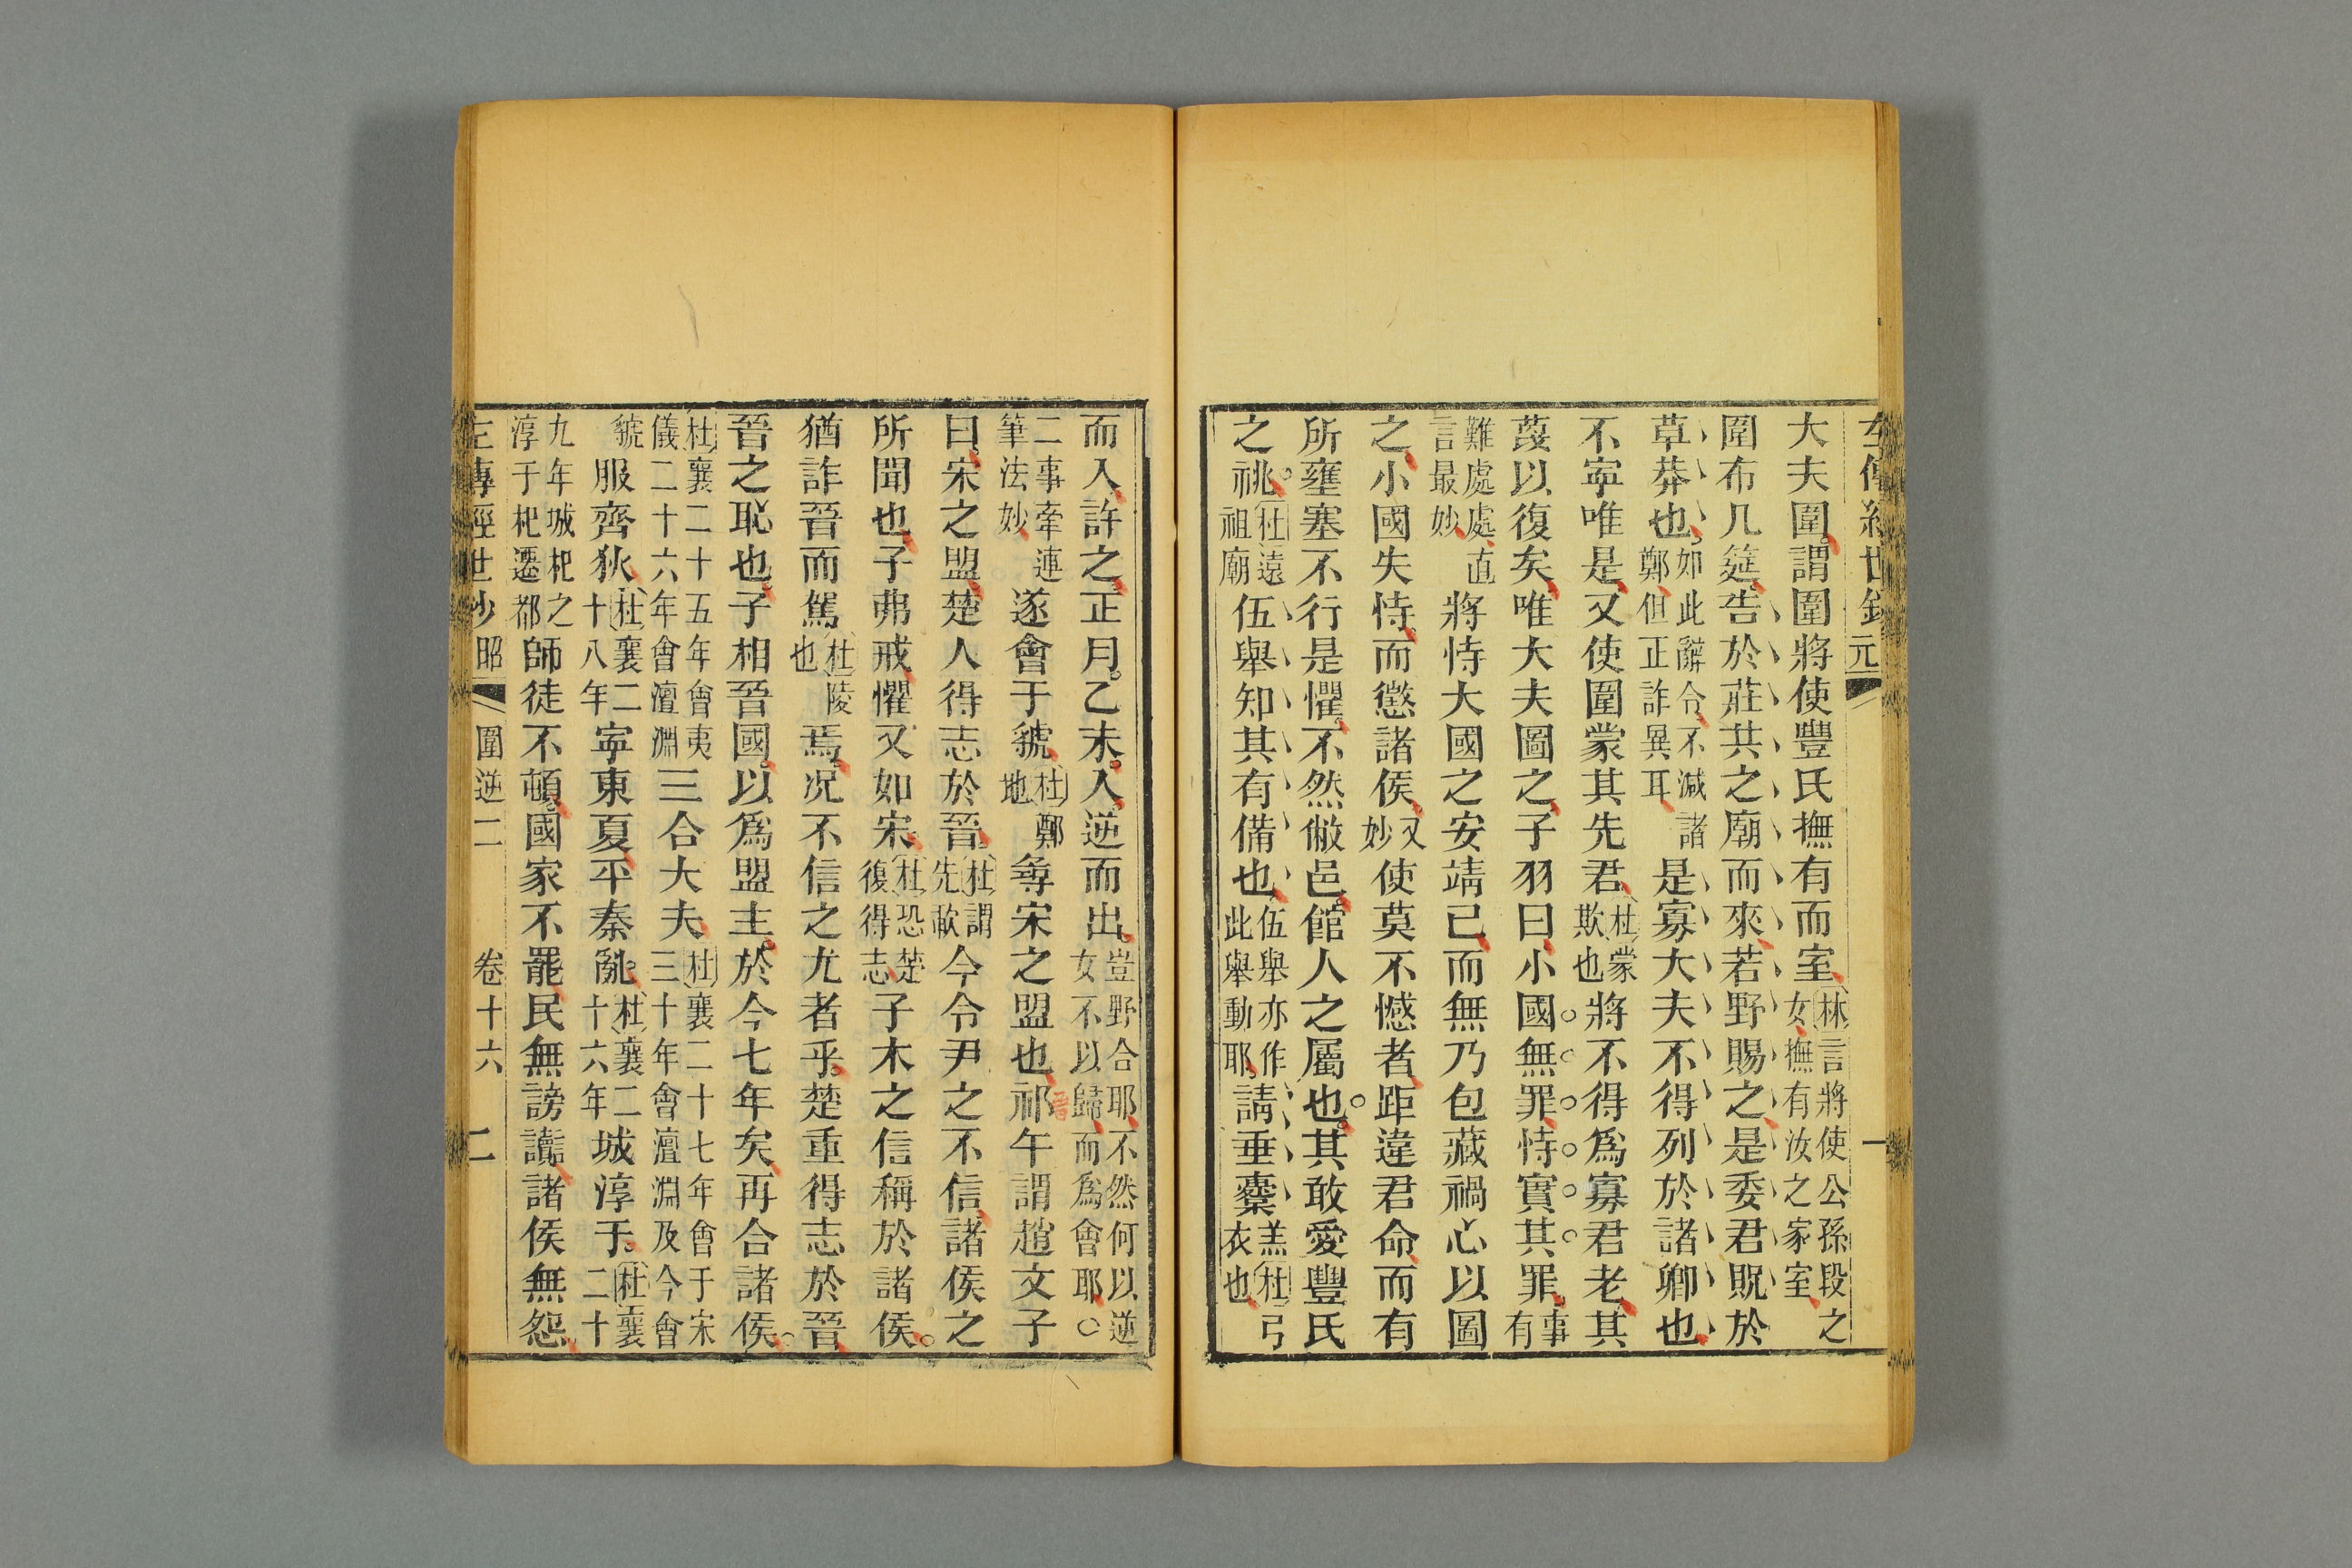 左傳經世鈔 元 一
大夫圍謂圍將使豐氏撫有而室林言將使公孫段之女撫有汝之家室
圍布几筵告於莊共之廟而來若野賜之是委君貺於
草莽也如此辭令不減諸鄭但正詐異耳是寡大夫不得列於諸卿也
不寜唯是又使圍蒙其先君杜蒙欺也將不得爲寡君老其
蔑以復矣唯大夫圖之子羽曰小國無罪恃實其罪事有
難處處直言最妙將恃大國之安靖己而無乃包藏禍心以圖
之小國失恃而懲諸侯又妙使莫不憾者距違君命而有
所壅塞不行是懼不然敝邑館人之屬也其敢愛豐氏
之祧杜遠祖廟伍舉知其有備也伍舉亦作此舉動耶請垂櫜杜弓衣也
而入許之正月乙未入逆而出豈野合耶不然何以逆女不以歸而爲會耶○
二事牽連筆法妙遂會于虢杜鄭地尋宋之盟也祁午謂趙文子
曰宋之盟楚人得志於晉杜謂先歃今令尹之不信諸侯之
所聞也子弗戒懼又如宋杜恐楚復得志子木之信稱於諸侯
猶詐晉而駕杜陵也焉况不信之尤者乎楚重得志於晉
晉之恥也子相晉國以爲盟主於今七年矣再合諸侯
杜襄二十五年會夷儀二十六年會澶淵三合大夫杜襄二十七年會于宋三十年會澶淵及今會
虢服齊狄杜襄二十八年寜東夏平秦亂杜襄二十六年城淳于杜襄二十
九年城杞之淳于杞遷都師徒不頓國家不罷民無謗讟諸侯無怨
左傳經世鈔 昭 圍逆二 卷十六 二